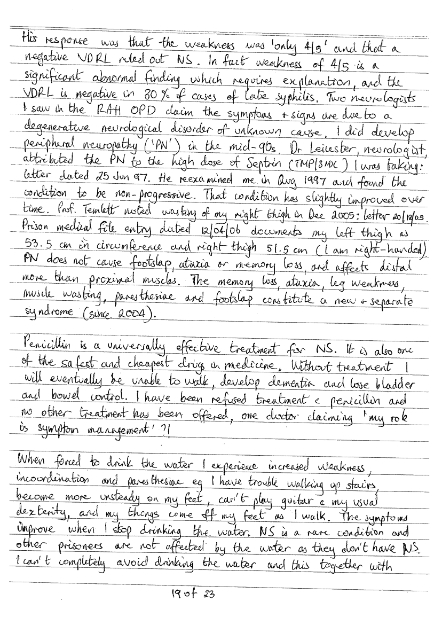 His response was that the weakness was 'only 4/5' and that a
negative VDRL ruled out NS. In fact weakness of 4/5 is a
significant abnormal finding which requires explanation, and the
VDRL is negative in 30% of cases of late syphilis. Two neurologists
I saw in the RAH OPD claim the symptoms + signs are due to a
degenerative neurological disorder of unknown cause. I did develop
peripheral neuropathy ('PN') in the mid-90s. Dr Leicester, neurologist,
attributed the PN to the high dose of Septrin (TMP/SMX) I was taking:
letter dated 25 Jun 97. He reexamined me in Aug 1997 and found the
condition to be non-progressive. That condition has slightly improved over
time. Prof. Temlett noted wasting of my right thigh in Dec 2005: letter 20/12/05.
Prison medical file entry dated 12/06/06 documents my left thigh as
53.5 cm in circumference and right thigh 51.5 cm (I am right-handed)
PN does not cause footslap, ataxia or memory loss and affects distal
more than proximal muscles. The memory loss, ataxia, leg weakness,
muscle wasting, paresthesiae and footslap constitute a new + separate
syndrome (since 2004).
Penicillin is a universally effective treatment for NS. It is also one
of the safest and cheapest drugs in medicine. Without treatment I
will eventually be unable to walk, develop dementia and lose bladder
and bowel control. I have been refused treatment c penicillin and
no other treatment has been offered, one doctor claiming 'my role
is symptom management' ?!
When forced to drink the water I experience increased weakness,
incoordination and paresthesiae eg I have trouble walking up stairs,
become more unsteady on my feet, can't play guitar c my usual
dexterity, and my thongs come off my feet as I walk. The symptoms
improve when I stop drinking the water. NS is a rare condition and
other prisoners are not affected by the water as they don't have NS.
I can't completely avoid drinking the water and this together with
19 of 23